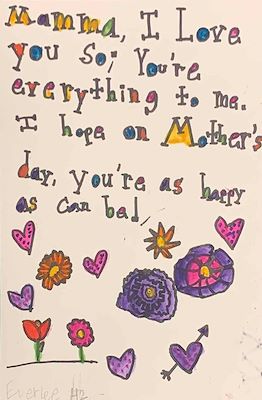 Mamma, I Love
you So; You're
everything to me.
I hope on Mother's
day, you're as happy
as can bel,
Everlee